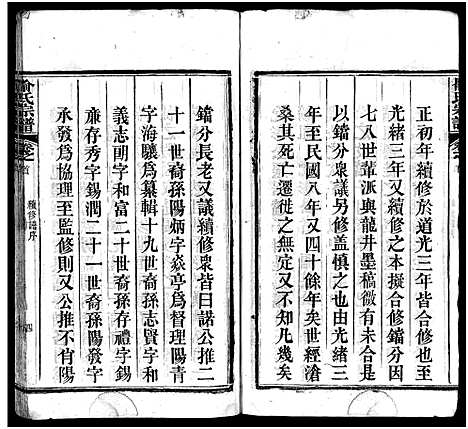 正初年續修於道光三年皆合修
光緒三年又續修之本擬合修鐺分因
七八世輩派與龍井墨稿微有不合是
以鐺分衆議另修蓋慎之也由光緒三
年至民國八年又四十餘年矣世經滄
桑其死亡遷徙之無定又不知几幾矣
鐺分長老又議續修衆皆曰諾公推二
十一世裔孫陽炳字焱亭爲督理陽青
字海驤爲纂輯十九世裔孫志賢字和
義志副字和富二十世裔孫存烈字
廉存秀字錫潤二十一世裔孫陽發字
承發爲協理至監修則又公推不肖陽
氏宗譜
首
續修譜序
四
氏宗譜